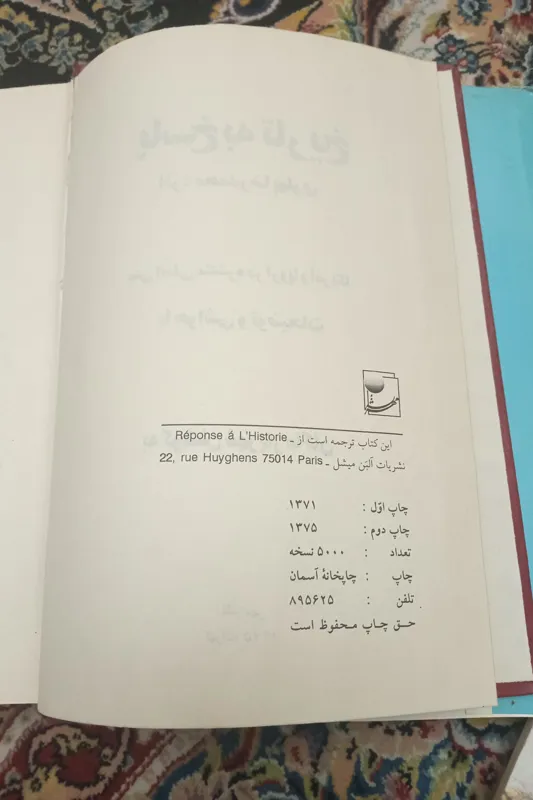 این کتاب ترجمه است از ـ Réponse á L'Historie
نشریات آلبن میشل ـ 22, rue Huyghens 75014 Paris
چاپ اوّل : ۱۳۷۱
چاپ دوم : ۱۳۷۵
تعداد : ۵۰۰۰ نسخه
چاپ : چاپخانهٔ آسمان
تلفن : ۸۹۵۶۲۵
حـق چـاپ مـحفوظ است